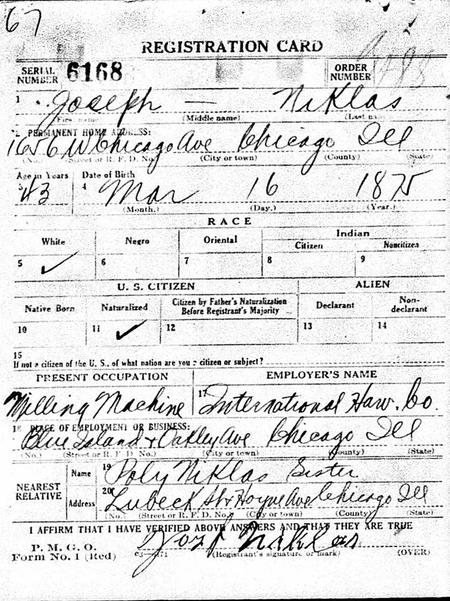 67
REGISTRATION CARD
SERIAL NUMBER 6168 ORDER NUMBER
1 Joseph — Niklas
(First name) (Middle name) (Last name)
2 PERMANENT HOME ADDRESS:
1656 W Chicago Ave Chicago Ill
(No.) (Street or R. F. D. No.) (City or town) (County) (State)
Age in Years Date of Birth
3 43 4 Mar 16 1875
(Month.) (Day.) (Year.)
RACE
White Negro Oriental Indian
Citizen Noncitizen
5 ✓ 6 7 8 9
U. S. CITIZEN ALIEN
Native Born Naturalized Citizen by Father's Naturalization Before Registrant's Majority Declarant Non-declarant
10 11 ✓ 12 13 14
15
If not a citizen of the U. S., of what nation are you a citizen or subject?
PRESENT OCCUPATION EMPLOYER'S NAME
Milling Machine 17 International Harv. Co.
18 PLACE OF EMPLOYMENT OR BUSINESS:
Blue Island & Oakley Ave Chicago Ill
(No.) (Street or R. F. D. No.) (City or town) (County) (State)
NEAREST RELATIVE
Name 19 Poly Niklas Sister
Address 20 Lubeck St & Hoyne Ave Chicago Ill
(No.) (Street or R. F. D. No.) (City or town) (County) (State)
I AFFIRM THAT I HAVE VERIFIED ABOVE ANSWERS AND THAT THEY ARE TRUE
P. M. G. O.
Form No. 1 (Red) Niklas
(Registrant's signature or mark) (OVER)